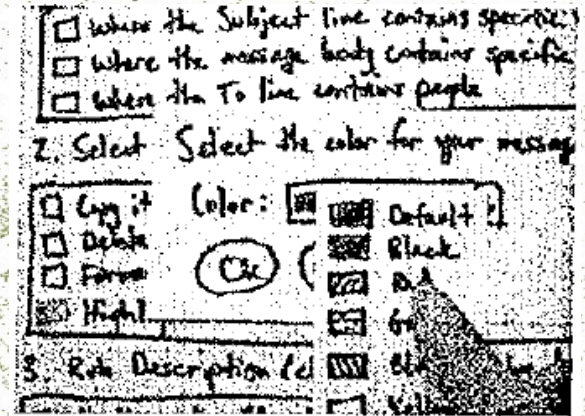 Where the Subject line contains specific
Where the message body contains specific
Where the To line contains people
2. Select
Select the color for your messag
Copy it
Color:
Default
Delete
Black
Ok
High
3. Rule Description (cl